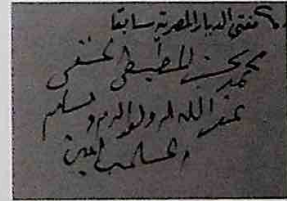 مفتى الديار المصرية سابقا
محمد بخيت المطيعى الحنفى
غفر الله له ولوالديه ولسائر
المسلمين آمين